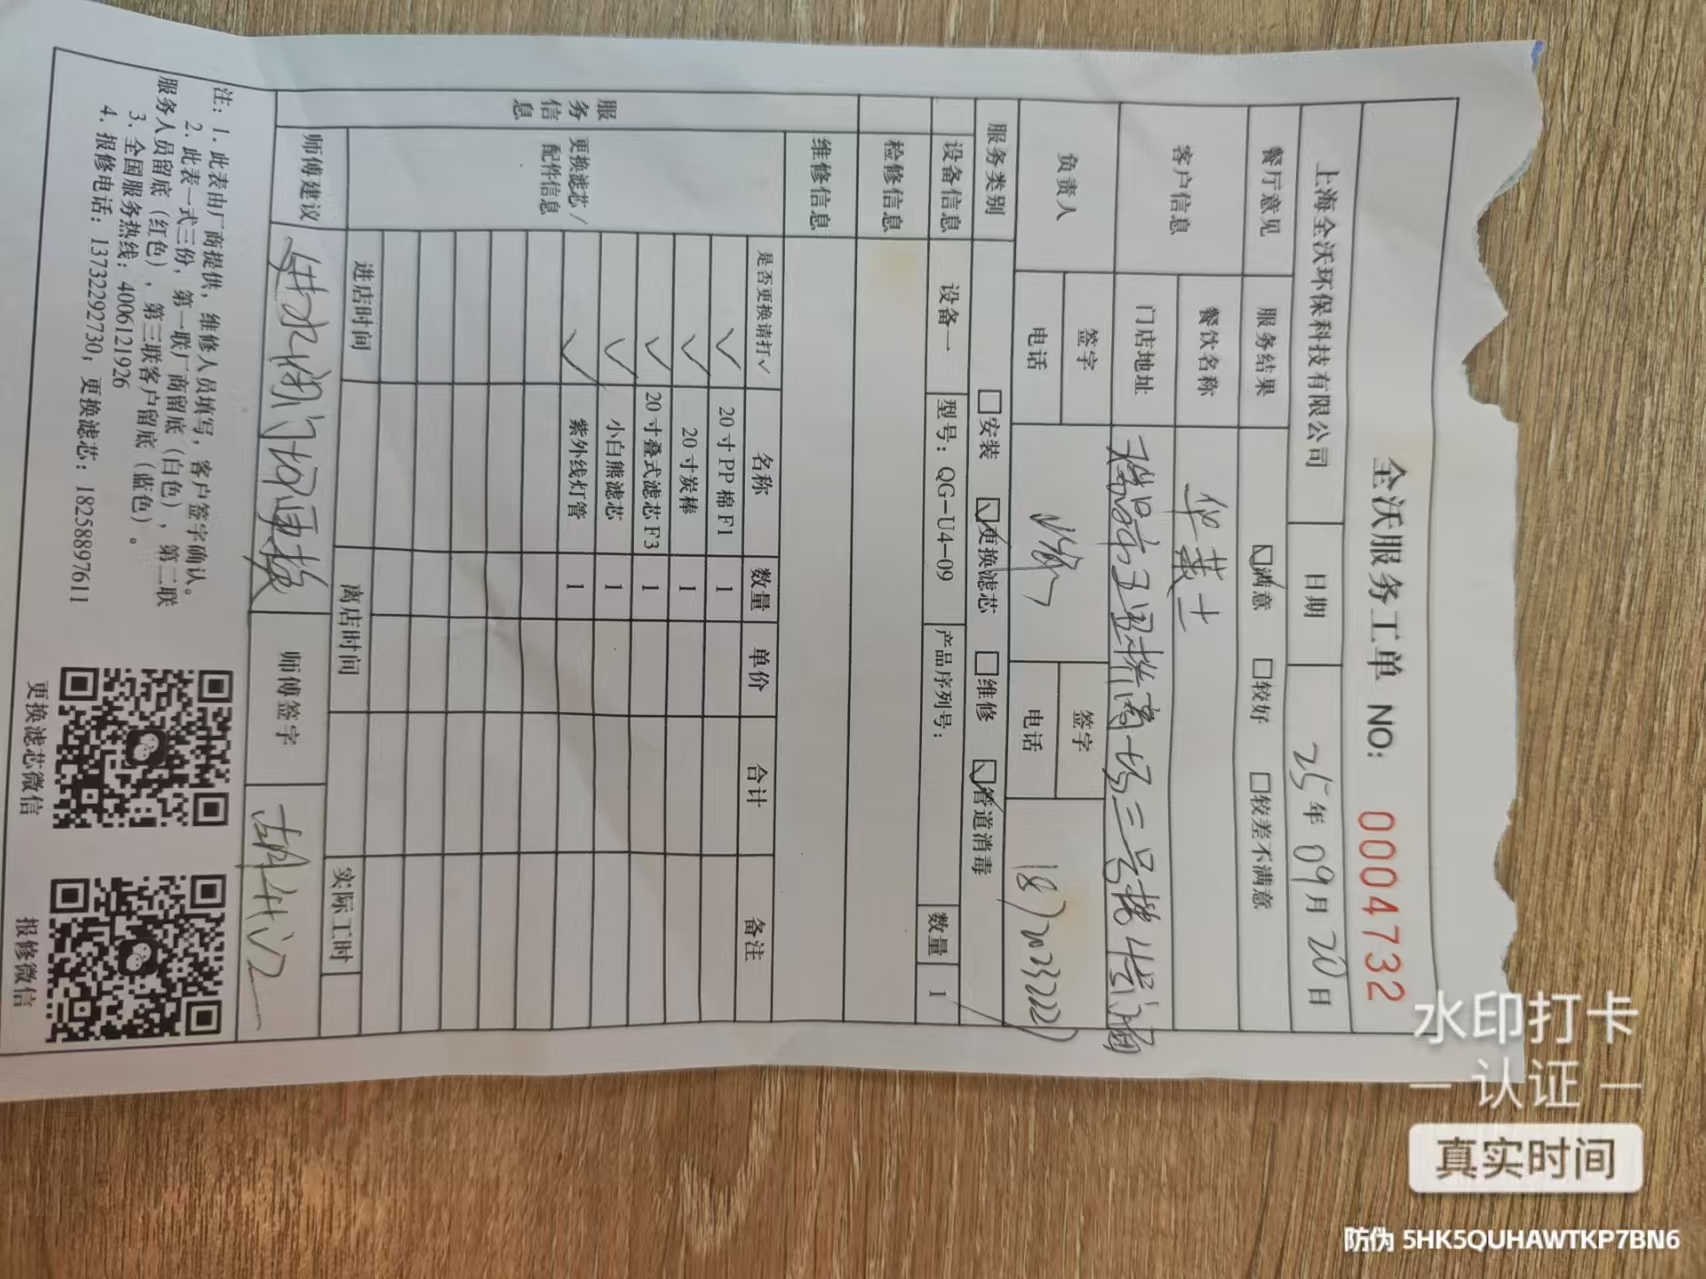 全沃服务工单 NO: 0004732
上海全沃环保科技有限公司 日期 25年09月20日
餐厅意见 服务结果 ☑满意 □较好 □较差不满意
客户信息 餐饮名称 华莱士
门店地址 三号楼
负责人 签字 签字
电话 电话
服务类别 □安装 ☑更换滤芯 □维修 ☑管道消毒
设备信息 设备一 型号：QG-U4-09 产品序列号： 数量 1
检修信息
维修信息
服务信息
更换滤芯/配件信息
是否更换请打√ 名称 数量 单价 合计 备注
√ 20寸PP棉F1 1
√ 20寸炭棒 1
√ 20寸叠式滤芯F3 1
√ 小白熊滤芯 1
√ 紫外线灯管 1
进店时间 离店时间 实际工时
师傅建议 进水阀门切更换 师傅签字
注：1. 此表由厂商提供，维修人员填写，客户签字确认。
2. 此表一式三份，第一联厂商留底（白色），第二联
服务人员留底（红色），第三联客户留底（蓝色）。
3. 全国服务热线：4006121926
4. 报修电话：13732292730；更换滤芯：18258897611
更换滤芯微信
报修微信
水印打卡
认证
真实时间
防伪 5HK5QUHAWTKP7BN6